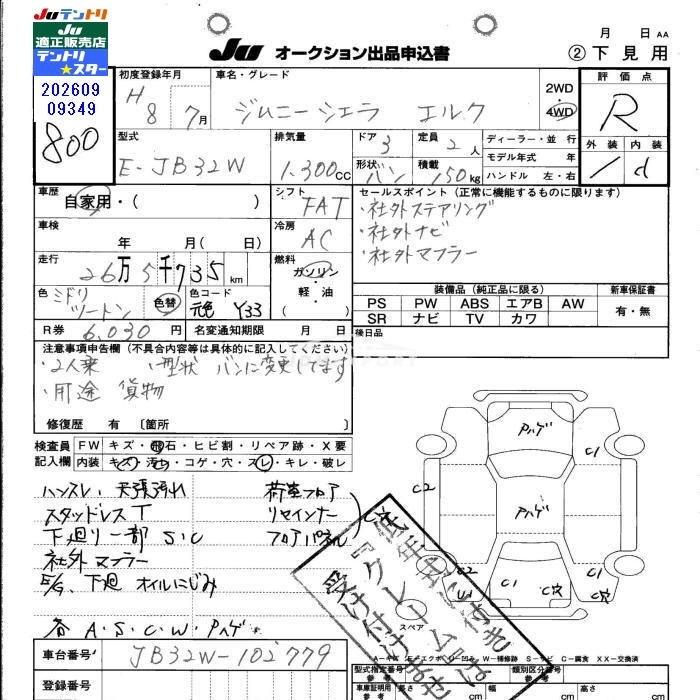 Juテントリ
Ju
適正販売店
テントリ
★スター
202609
09349
800
JU オークション出品申込書
月 日 AA
② 下見用
初度登録年月
H 8年 7月
車名・グレード
ジムニーシエラ エルク
2WD
4WD
評価点
R
外装 内装
/ d
型式
E-JB32W
排気量
1.300cc
ドア 3
形状 バン
定員 2人
積載 150kg
ディーラー・並行
モデル年式 年
ハンドル 左・右
車歴
自家用・( )
シフト
FAT
車検
年 月( 日)
冷房
AC
走行
26万5千735km
燃料
ガソリン・
軽油
( )
色
ミドリ
ツートン
色替
色コード
元色 Y33
R券 6,030円
名変通知期限 月 日
セールスポイント(正常に機能するものに限ります)
・社外ステアリング
・社外ナビ
・社外マフラー
装備品(純正品に限る)
PS PW ABS エアB AW
SR ナビ TV カワ
新車保証書
有・無
後日品
注意事項申告欄(不具合内容等は具体的に記入してください)
・2人乗 ・形状 バンに変更してます
・用途 貨物
修復歴 有 〔箇所 〕
検査員
記入欄
FW キズ・飛石・ヒビ割・リペア跡・X要
内装 キズ・汚れ・コゲ・穴・スレ・キレ・破レ
ハンスレ、天張汚れ
スタッドレスT
下廻リ一部 S・C
社外マフラー
E/G、下廻 オイルにじみ
各 A・S・C・W・Pハゲ
荷室フロア
リヤインナー
フロアパネル
C大
Pハゲ
Pハゲ
C1
C2
C1
C2
U1
C1
C1
C穴
C穴
スペア
低年式に付き
『クレーム』は
受け付けません
車台番号
JB32W-102779
登録番号
型式指定番号
類別区分番号
長さ cm
幅 cm
高さ cm